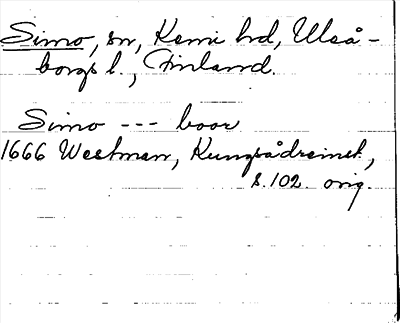 Simo, sn, Kemi hd, Uleå-
borgs l., Finland.
Simo --- boar
1666 Westman, Kungsådreinst.,
s. 102. orig.